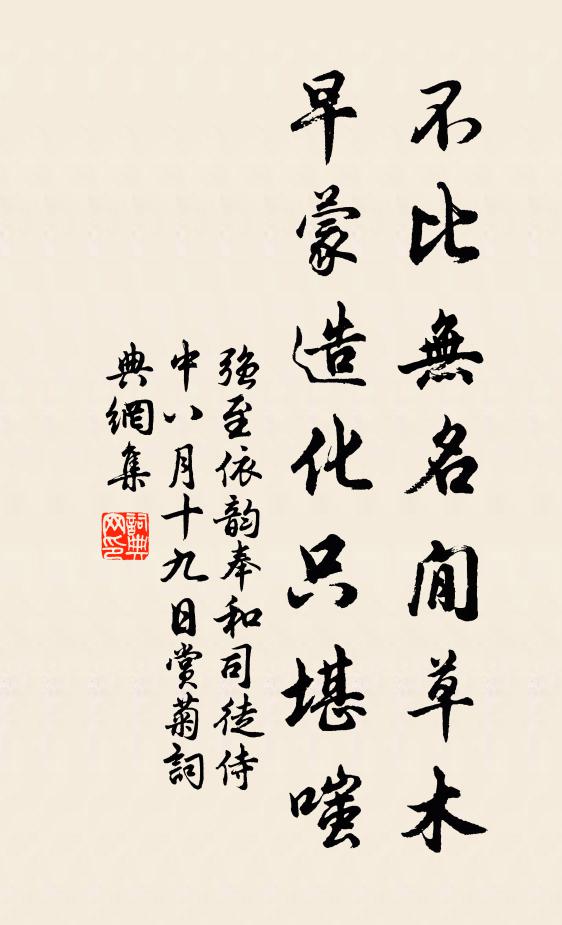 不比無名閒草木
早蒙造化只堪嗤
强至依韵奉和司徒侍
中八月十九日賞菊詞
典網集
詞典網印